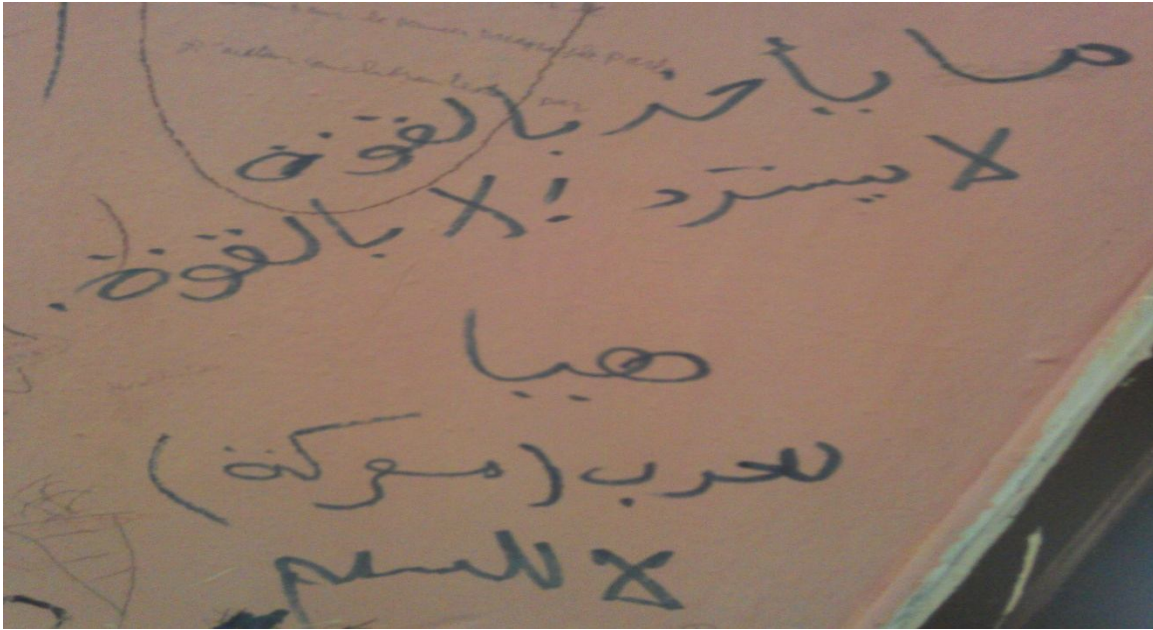 ما يأخذ بالقوة
لا يسترد إلا بالقوة.
هيا
للحرب (معركة)
لا للسلم